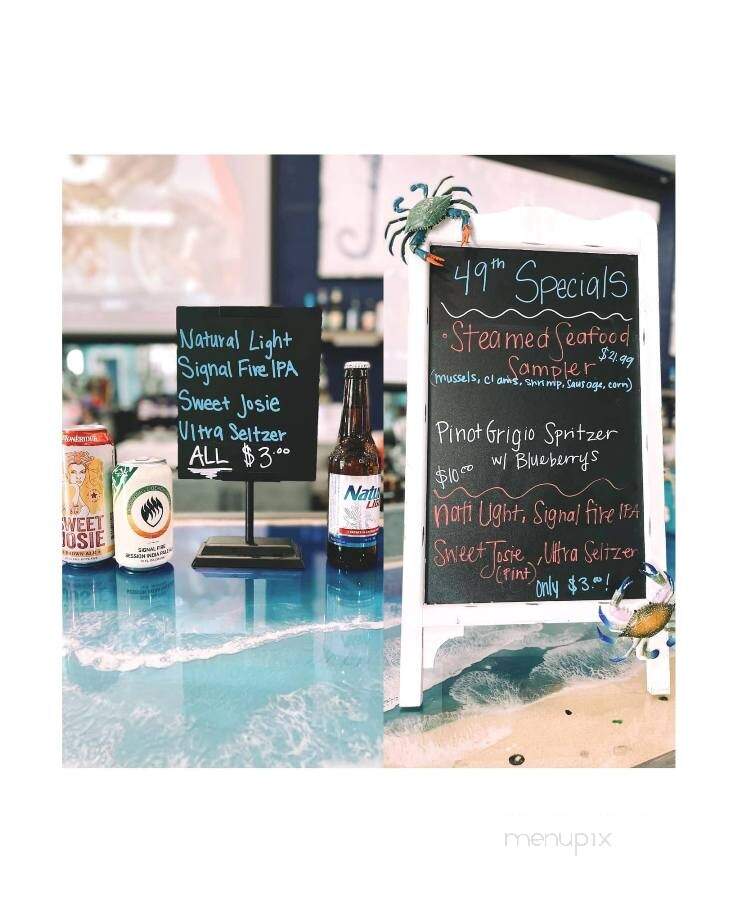 Natural Light
Signal Fire IPA
Sweet Josie
Ultra Seltzer
ALL $3.00
SWEET
JOSIE
BROWN ALE
SIGNAL FIRE
SESSION INDIA PALE
Natu
49th Specials
·Steamed Seafood
Sampler $21.99
(mussels, clams, shrimp, sausage, corn)
Pinot Grigio Spritzer
w/ Blueberrys
$10.00
nati Light, Signal fire IPA
Sweet Josie, Ultra Seltzer
(Pint)
only $3.00!
menupix